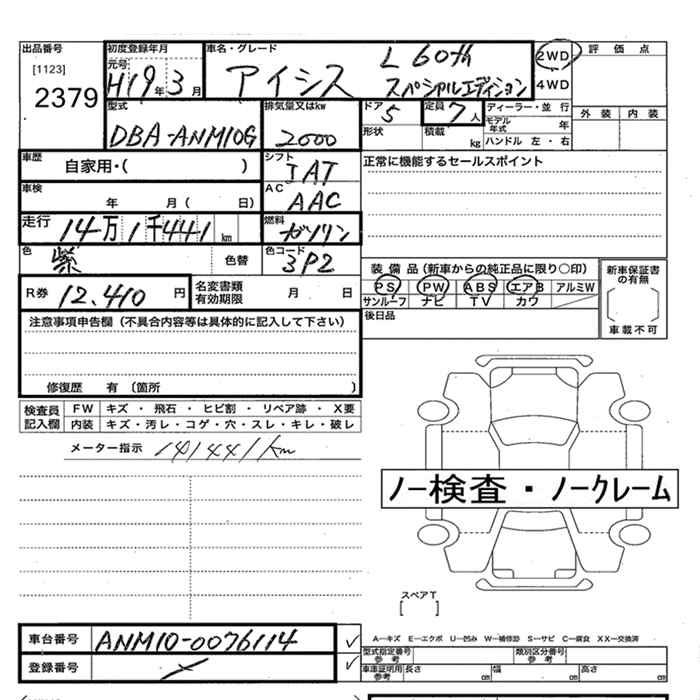 出品番号
[1123]
2379
初度登録年月
元号
H19年 3月
車名・グレード
アイシス
L 60th
スペシャルエディション
2WD
4WD
評価点
外装 内装
型式
DBA-ANM10G
排気量又はkw
2000
ドア
5
形状
定員
7人
積載
kg
ディーラー・並行
モデル年式 年
ハンドル 左・右
車歴
自家用・( )
シフト
IAT
正常に機能するセールスポイント
車検
年 月( 日)
AC
AAC
走行
14万1千441km
燃料
ガソリン
色
紫
色替
色コード
3P2
装備品(新車からの純正品に限り○印)
PS PW ABS エアB アルミW
サンルーフ ナビ TV カワ
後日品
新車保証書の有無
車載不可
R券
12,410円
名変書類有効期限 月 日
注意事項申告欄(不具合内容等は具体的に記入して下さい)
修復歴 有(箇所 )
検査員記入欄
FW キズ・飛石・ヒビ割・リペア跡・X要
内装 キズ・汚レ・コゲ・穴・スレ・キレ・破レ
メーター指示 141441km
ノー検査・ノークレーム
スペアT
[ ]
車台番号
ANM10-0076114
登録番号
A―キズ E―エクボ U―凹み W―補修跡 S―サビ C―腐食 XX―交換済
型式指定番号
参考
類別区分番号
参考
車庫証明用
参考
長さ cm 幅 cm 高さ cm